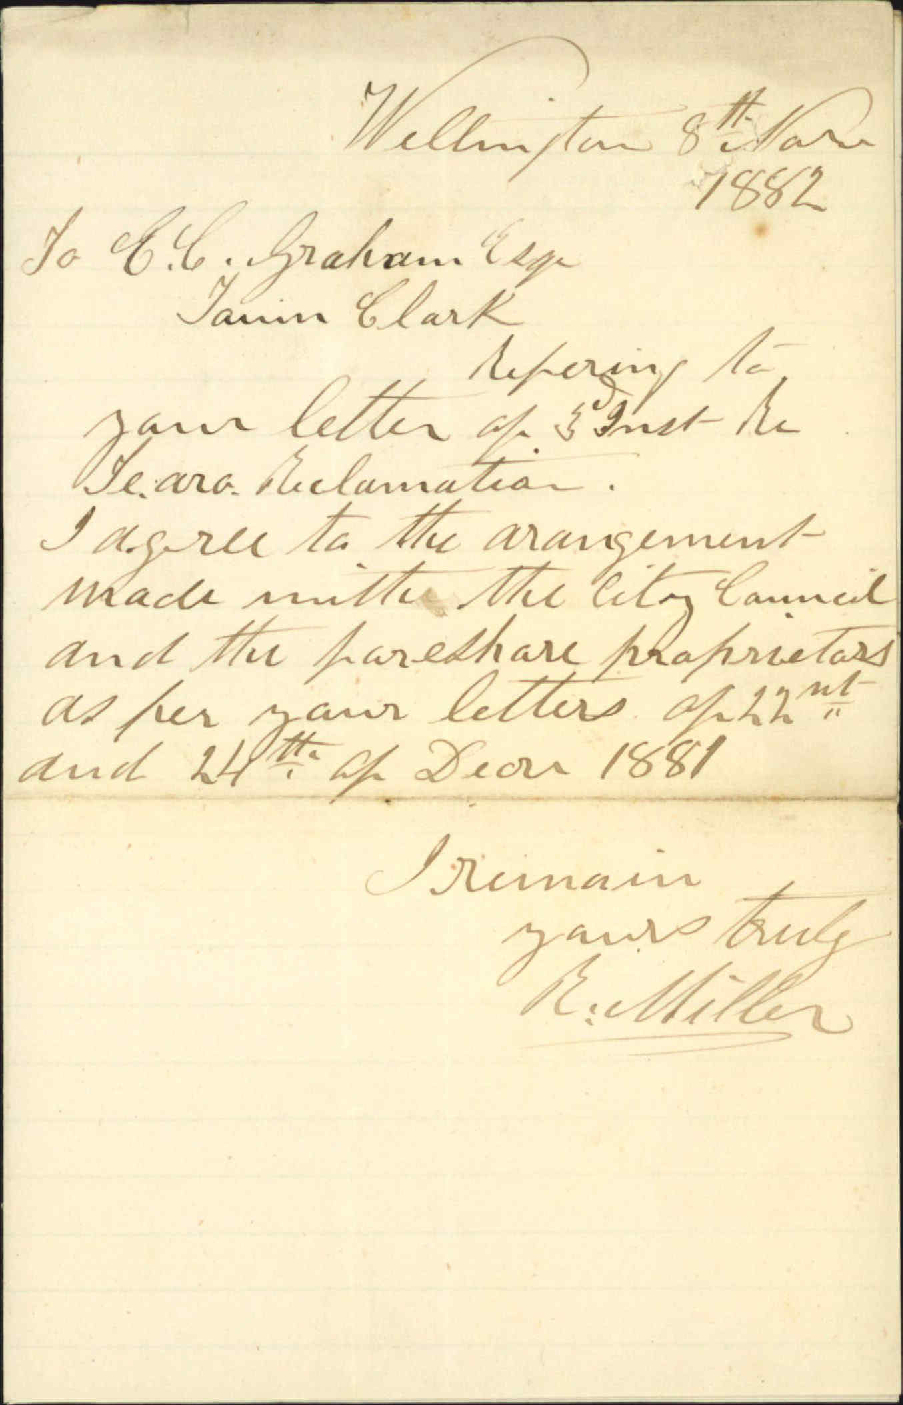 Wellington 8th Nov
1882
To C.C. Graham Esqr
Town Clark
Refering to
your letter of 3d Inst Re
Te. aro. Reclamation.
I agree to the arangement
made withe the City Council
and the foreshore proprietors
as per your letters of 22nt
and 24th of Decr 1881
I remain
yours truly
R. Miller